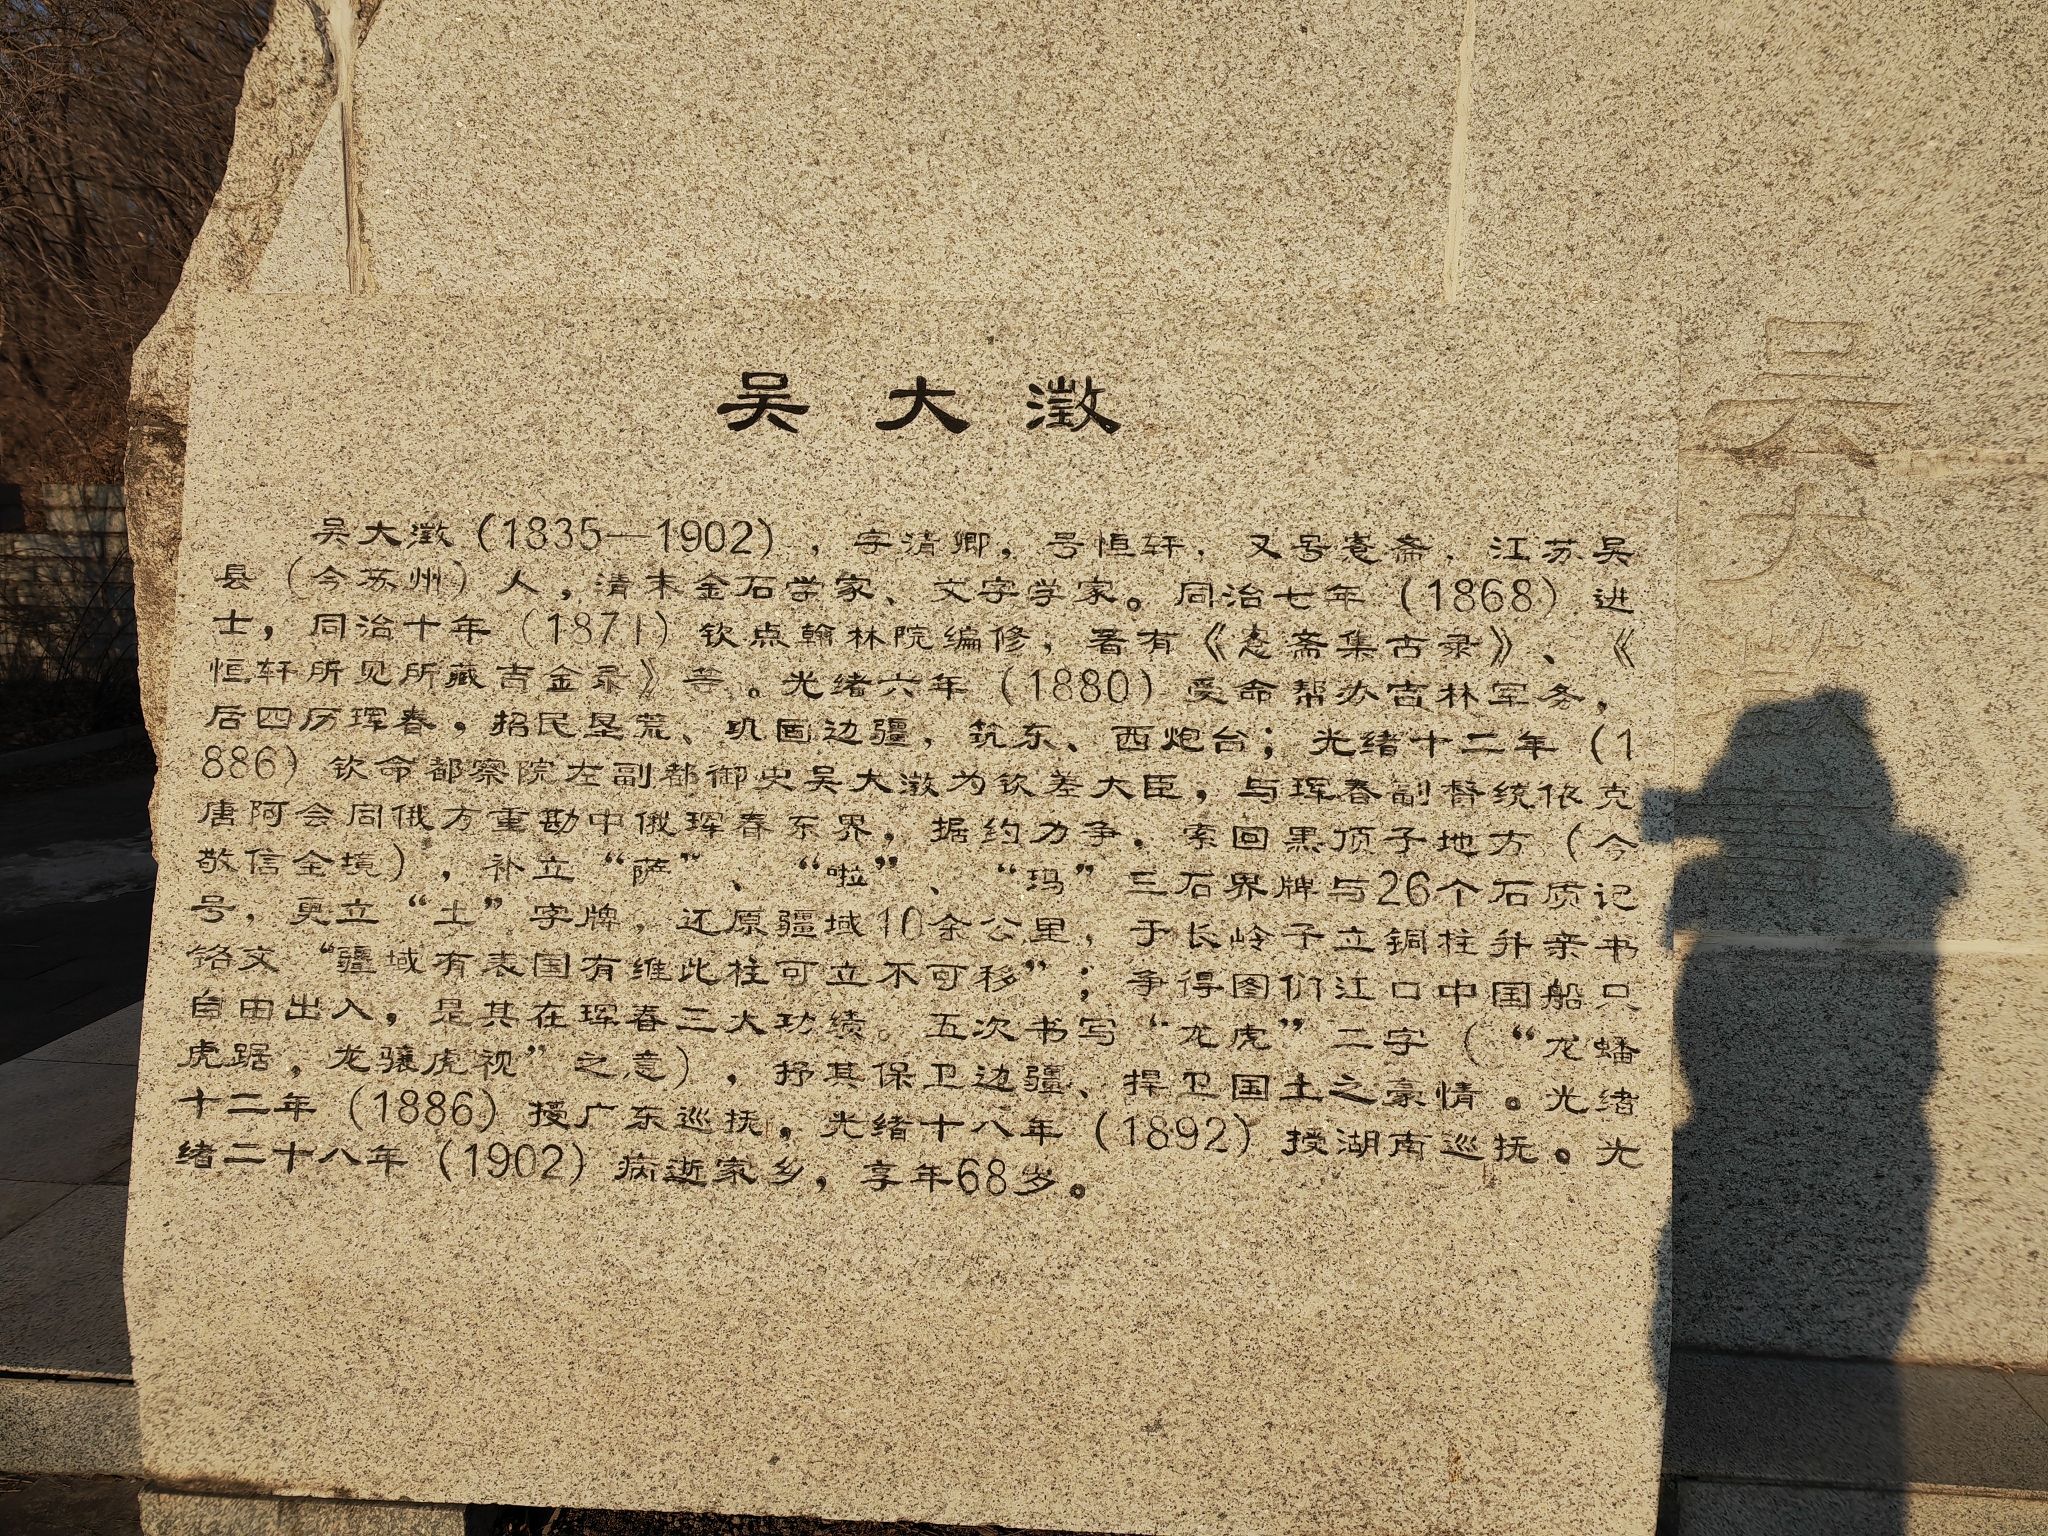 吴大澂
吴大澂（1835—1902），字清卿，号恒轩，又号愙斋，江苏吴
县（今苏州）人，清末金石学家、文字学家。同治七年（1868）进
士，同治十年（1871）钦点翰林院编修，著有《愙斋集古录》、《
恒轩所见所藏吉金录》等。光绪六年（1880）受命帮办吉林军务，
后四历珲春，招民垦荒、巩固边疆，筑东、西炮台；光绪十二年（1
886）钦命都察院左副都御史吴大澂为钦差大臣，与珲春副督统依克
唐阿会同俄方重勘中俄珲春东界，据约力争，索回黑顶子地方（今
敬信全境），补立“萨”、“啦”、“玛”三石界牌与26个石质记
号，更立“土”字牌，还原疆域10余公里，于长岭子立铜柱并亲书
铭文“疆域有表国有维此柱可立不可移”；争得图们江口中国船只
自由出入，是其在珲春三大功绩。五次书写“龙虎”二字（“龙蟠
虎踞，龙骧虎视”之意），抒其保卫边疆、捍卫国土之豪情。光绪
十二年（1886）授广东巡抚，光绪十八年（1892）授湖南巡抚。光
绪二十八年（1902）病逝家乡，享年68岁。
吴大